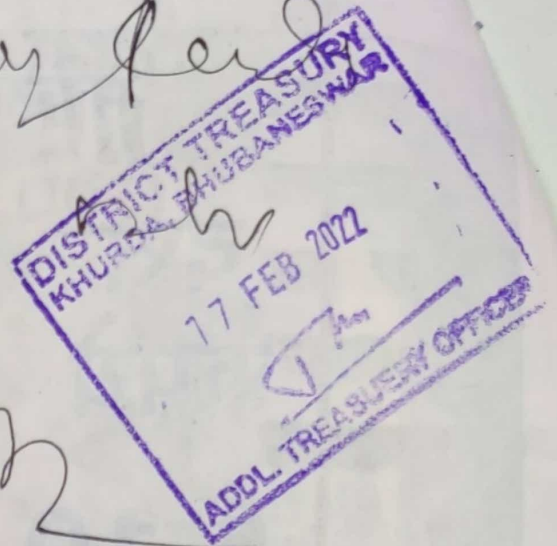 DISTRICT TREASURY
KHURDA, BHUBANESWAR
17 FEB 2022
ADDL. TREASUERY OFFICER